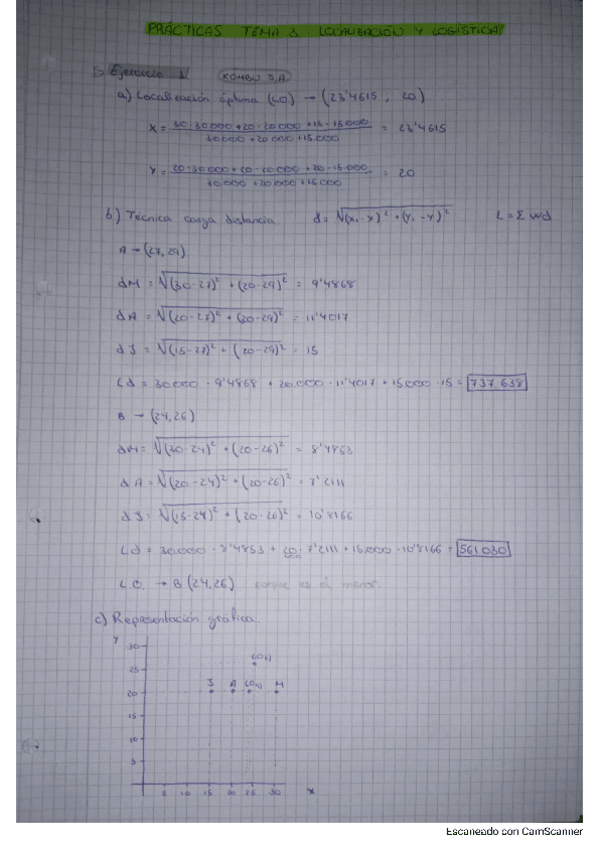 PRÁCTICAS TEMA 3 LOCALIZACIÓN Y LOGÍSTICA
Ejercicio 1 KOMBU S.A
a) Localización óptima (LO) → (23'4615, 20)
X = 30·30.000 + 20·20.000 + 15·15.000 / 30.000 + 20.000 + 15.000 = 23'4615
Y = 20·30.000 + 20·20.000 + 20·15.000 / 30.000 + 20.000 + 15.000 = 20
b) Técnica carga distancia. d = √(x₁ - x)² + (y₁ - y)² L = Σ wd
A → (27, 29)
dM = √(30-27)² + (20-29)² = 9'4868
dA = √(20-27)² + (20-29)² = 11'4017
dJ = √(15-27)² + (20-29)² = 15
Ld = 30.000 · 9'4868 + 20.000 · 11'4017 + 15.000 · 15 = 737.638
B → (24, 26)
dM = √(30-24)² + (20-26)² = 8'4853
dA = √(20-24)² + (20-26)² = 7'2111
dJ = √(15-24)² + (20-26)² = 10'8166
Ld = 30.000 · 8'4853 + 20· 7'2111 + 15.000 · 10'8166 = 561.030
L.O. → B (24, 26) porque es el menor.
c) Representación gráfica.
Y
30
25
J A M
20
15
10
5
5 10 15 20 25 30 X
Escaneado con CamScanner